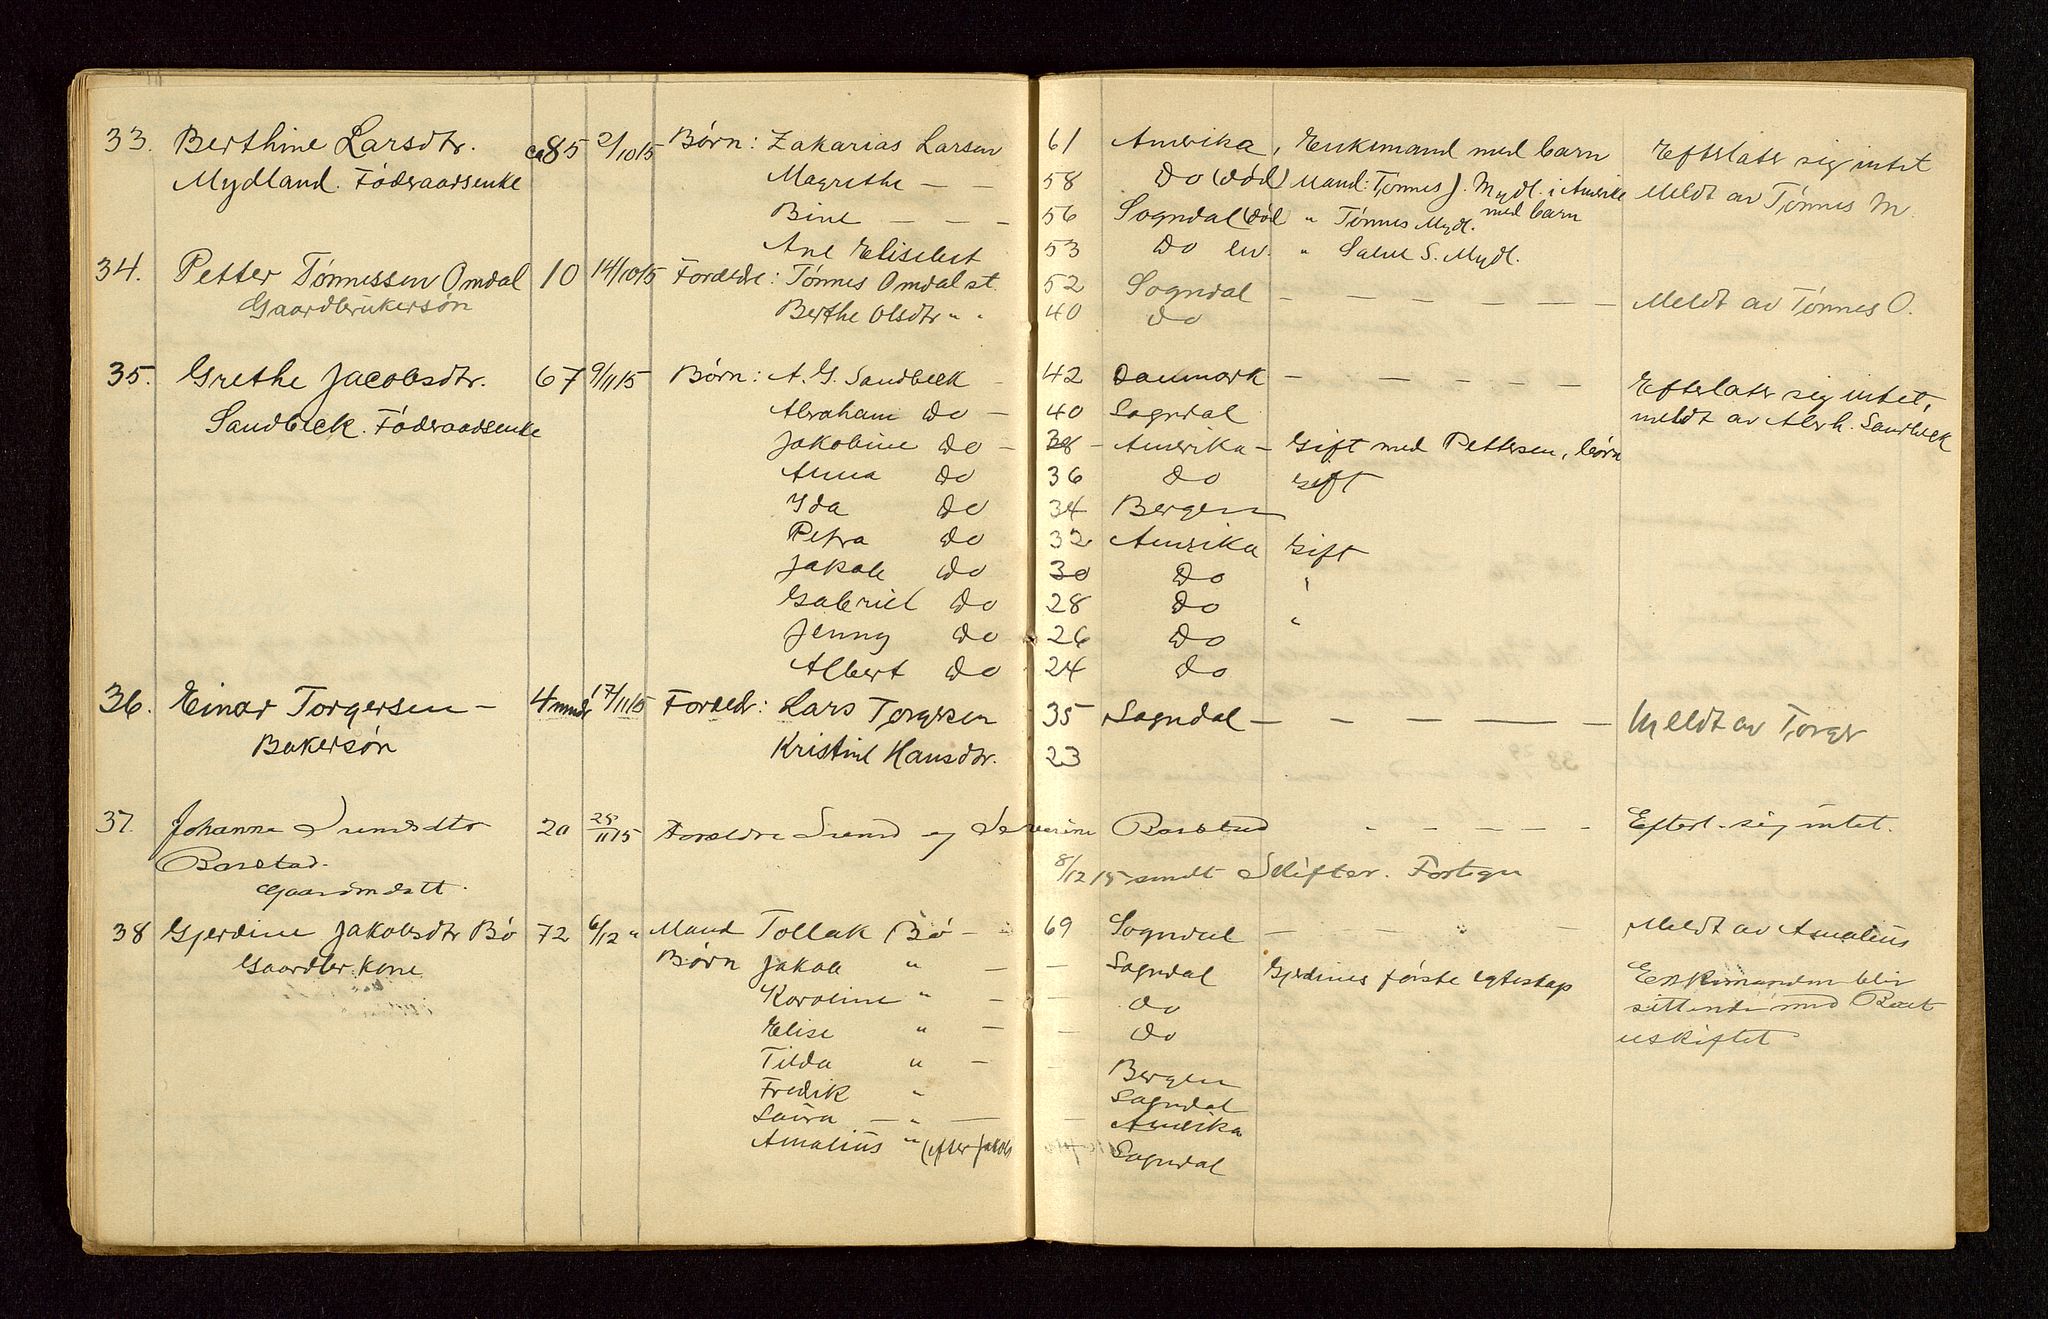 33. Berthine Larsdtr. ca 85 2/10 15 Børn: Zakarias Larsen 61 Amerika, Enkemand med barn Efterlater sig intet
Mydland. Føderaadsenke Magrethe — — 58 Do (død) Mand: Tønnes J. Mydl. i Amerika Meldt av Tønnes M.
med barn
Bine — — — 56 Sogndal (død " Tønnes Mydl.
Ane Elisebet 53 Do lev. " Salve S. Mydl.
34. Petter Tønnessen Omdal 10 14/10 15 Forældre: Tønnes Omdal st. 52 Sogndal — — — — — — Meldt av Tønnes O.
Gaardbrukersøn Berthe Olsdtr " " 40 Do
35. Grethe Jacobsdtr. 67 9/11 15 Børn: A. G. Sandbeck - 42 Danmark — — — — — — Efterlater sig intet,
Sandbeck. Føderaadsenke Abraham Do — 40 Sogndal meldt av Abrh. Sandbeck
Jakobine Do — 38 — Amerika — Gift med Pettersen, børn
Anna Do 36 Do Gift
Ida Do 34 Bergen
Petra Do 32 Amerika Gift
Jakob Do 30 Do "
Gabriel Do 28 Do "
Jenny Do 26 Do
Albert Do 24 Do
36. Einar Torgersen — 4 mndr 17/11 15 Forældr: Lars Torgersen 35 Sogndal — — — — — — Meldt av Torger
Bakersøn Kristine Hansdtr. 23
37. Johanne Svendsdtr 20 25/11 15 Forældre Svend og Severine Barstad - - - - - Efterl. sig intet.
Barstad. 8/12 15 sendt Skifter. Fortegn
Gaardmdatt.
38 Gjerdine Jakobsdtr Bø 72 6/12 " Mand Tollak Bø — 69 Sogndal — — " — — Meldt av Amalius
Gaardbr. Kone Børn Jakob " — — Sogndal Gjerdines første egteskap Enkemanden blir
Karoline " — — do sittende med Boet
Elise " — — Do uskiftet
Tilda " — - Bergen
Fredik " Sogndal
Laura — " — - Amerika
Amalius " (efter Jakob Sogndal